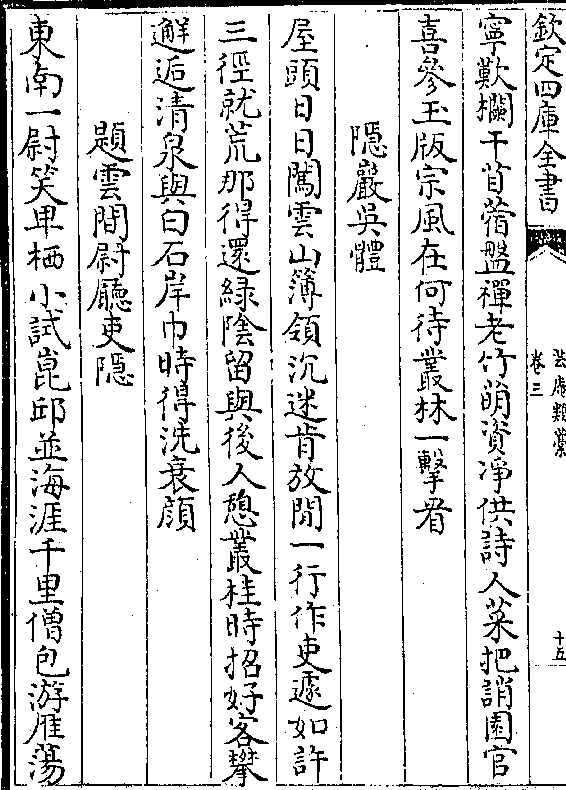 欽定四庫全書
芸庵類藁
卷三
十五
寧歎欄干苜蓿盤禪老竹萌資凈供詩人菜把誚園官
喜參玉版宗風在何待叢林一擊看
隠巖吳體
屋頭日日闖雲山簿領沉迷肯放閒一行作吏遽如許
三徑就荒那得還緑陰留與後人憩叢桂時招好客攀
邂逅清泉與白石岸巾時得洗衰顔
題雲間尉廳吏隠
東南一尉笑卑栖小試崑邱並海涯千里僧包游雁蕩